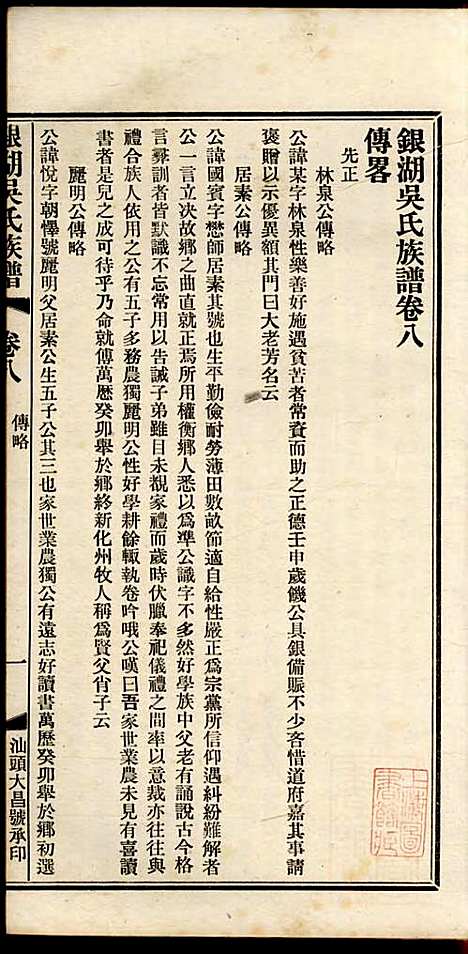 銀湖吳氏族譜卷八
傳畧
先正
林泉公傳略
公諱某字林泉性樂善好施遇貧苦者常資而助之正德壬申歲饑公具銀備賑不少吝惜道府嘉其事請
褒贈以示優異額其門曰大老芳名云
居素公傳略
公諱國賓字懋師居素其號也生平勤儉耐勞薄田數畝節適自給性嚴正為宗黨所信仰遇糾紛難解者
公一言立决故鄉之曲直就正焉所用權衡鄉人悉以為準公識字不多然好學族中父老有誦說古今格
言彝訓者皆默識不忘常用以告誡子弟雖目未覩家禮而歲時伏臘奉祀儀禮之間率以意裁亦往往與
禮合族人依用之公有五子多務農獨麗明公性好學耕餘輒執卷吟哦公嘆曰吾家世業農未見有喜讀
書者是兒之成可待乎乃命就傅萬歷癸卯舉於鄉終新化州牧人稱為賢父肖子云
麗明公傳略
公諱悅字朝懌號麗明父居素公生五子公其三也家世業農獨公有遠志好讀書萬歷癸卯舉於鄉初選
銀湖吳氏族譜
卷八
傳略
一
汕頭大昌號承印
上海圖
書館藏